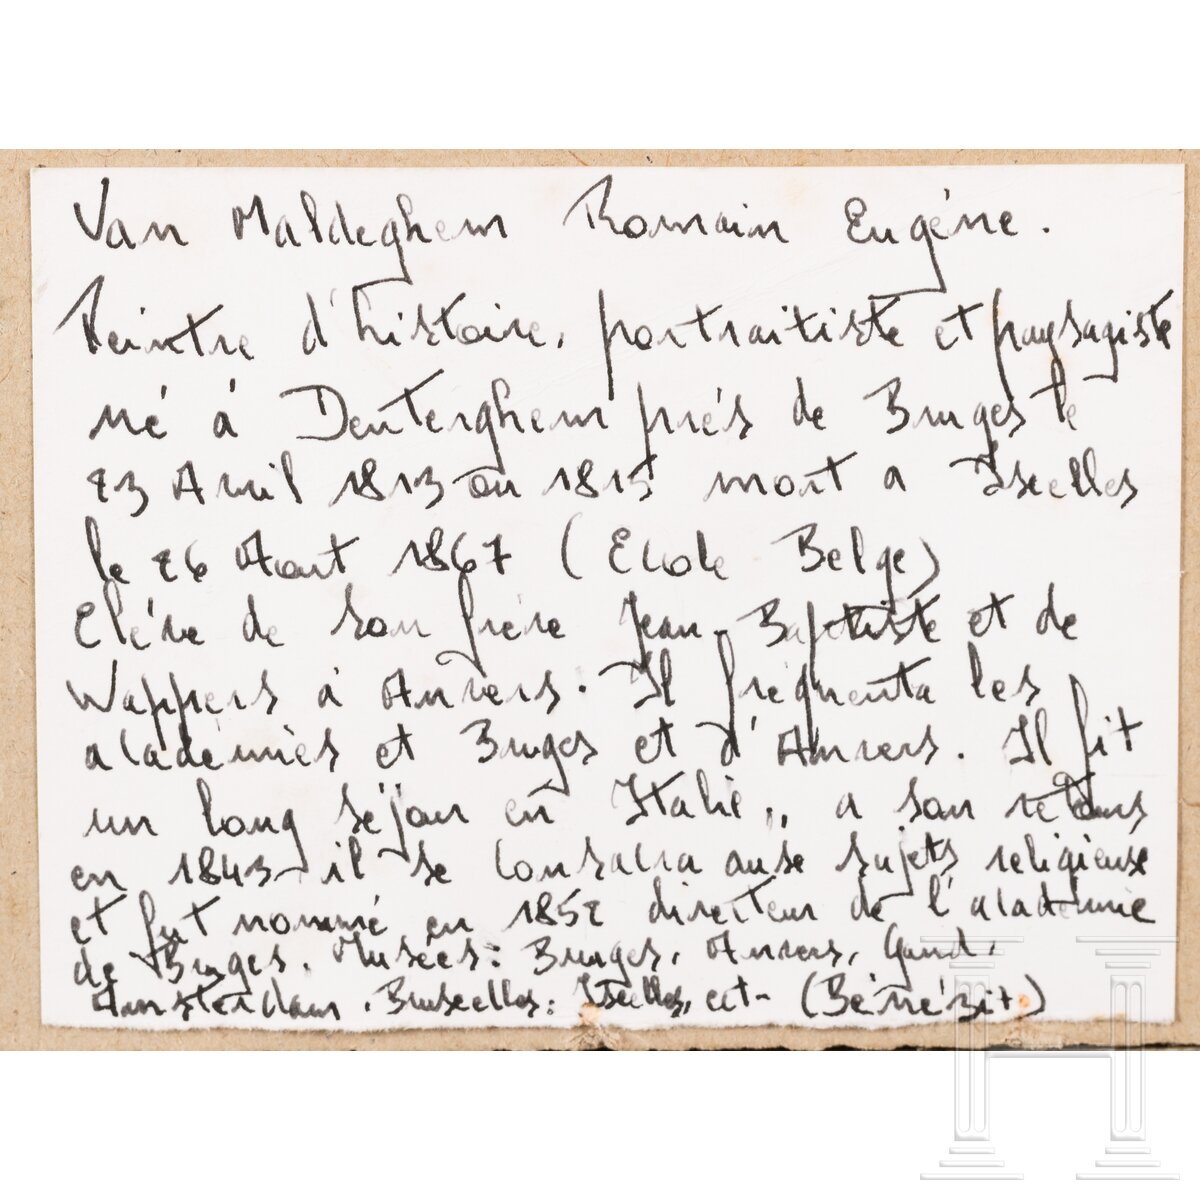 Van Maldeghem Romain Eugéne.
Peintre d'histoire, portraitiste et paysagiste
né à Denterghem prés de Bruges le
23 Avril 1813 ou 1815 mort a Ixelles
le 26 Aout 1867 (Ecole Belge)
Eléve de son frére Jean-Baptiste et de
Wappers à Anvers. Il fréquenta les
académies et Bruges et d'Anvers. Il fit
un long séjour en Italie, a son retour
en 1843 il se consacra aux sujets religieuse
et fut nommé en 1852 directeur de l'académie
de Bruges. Musées: Bruges, Anvers, Gand,
Amsterdam. Bruxelles: Ixelles, ect- (Bénézit)